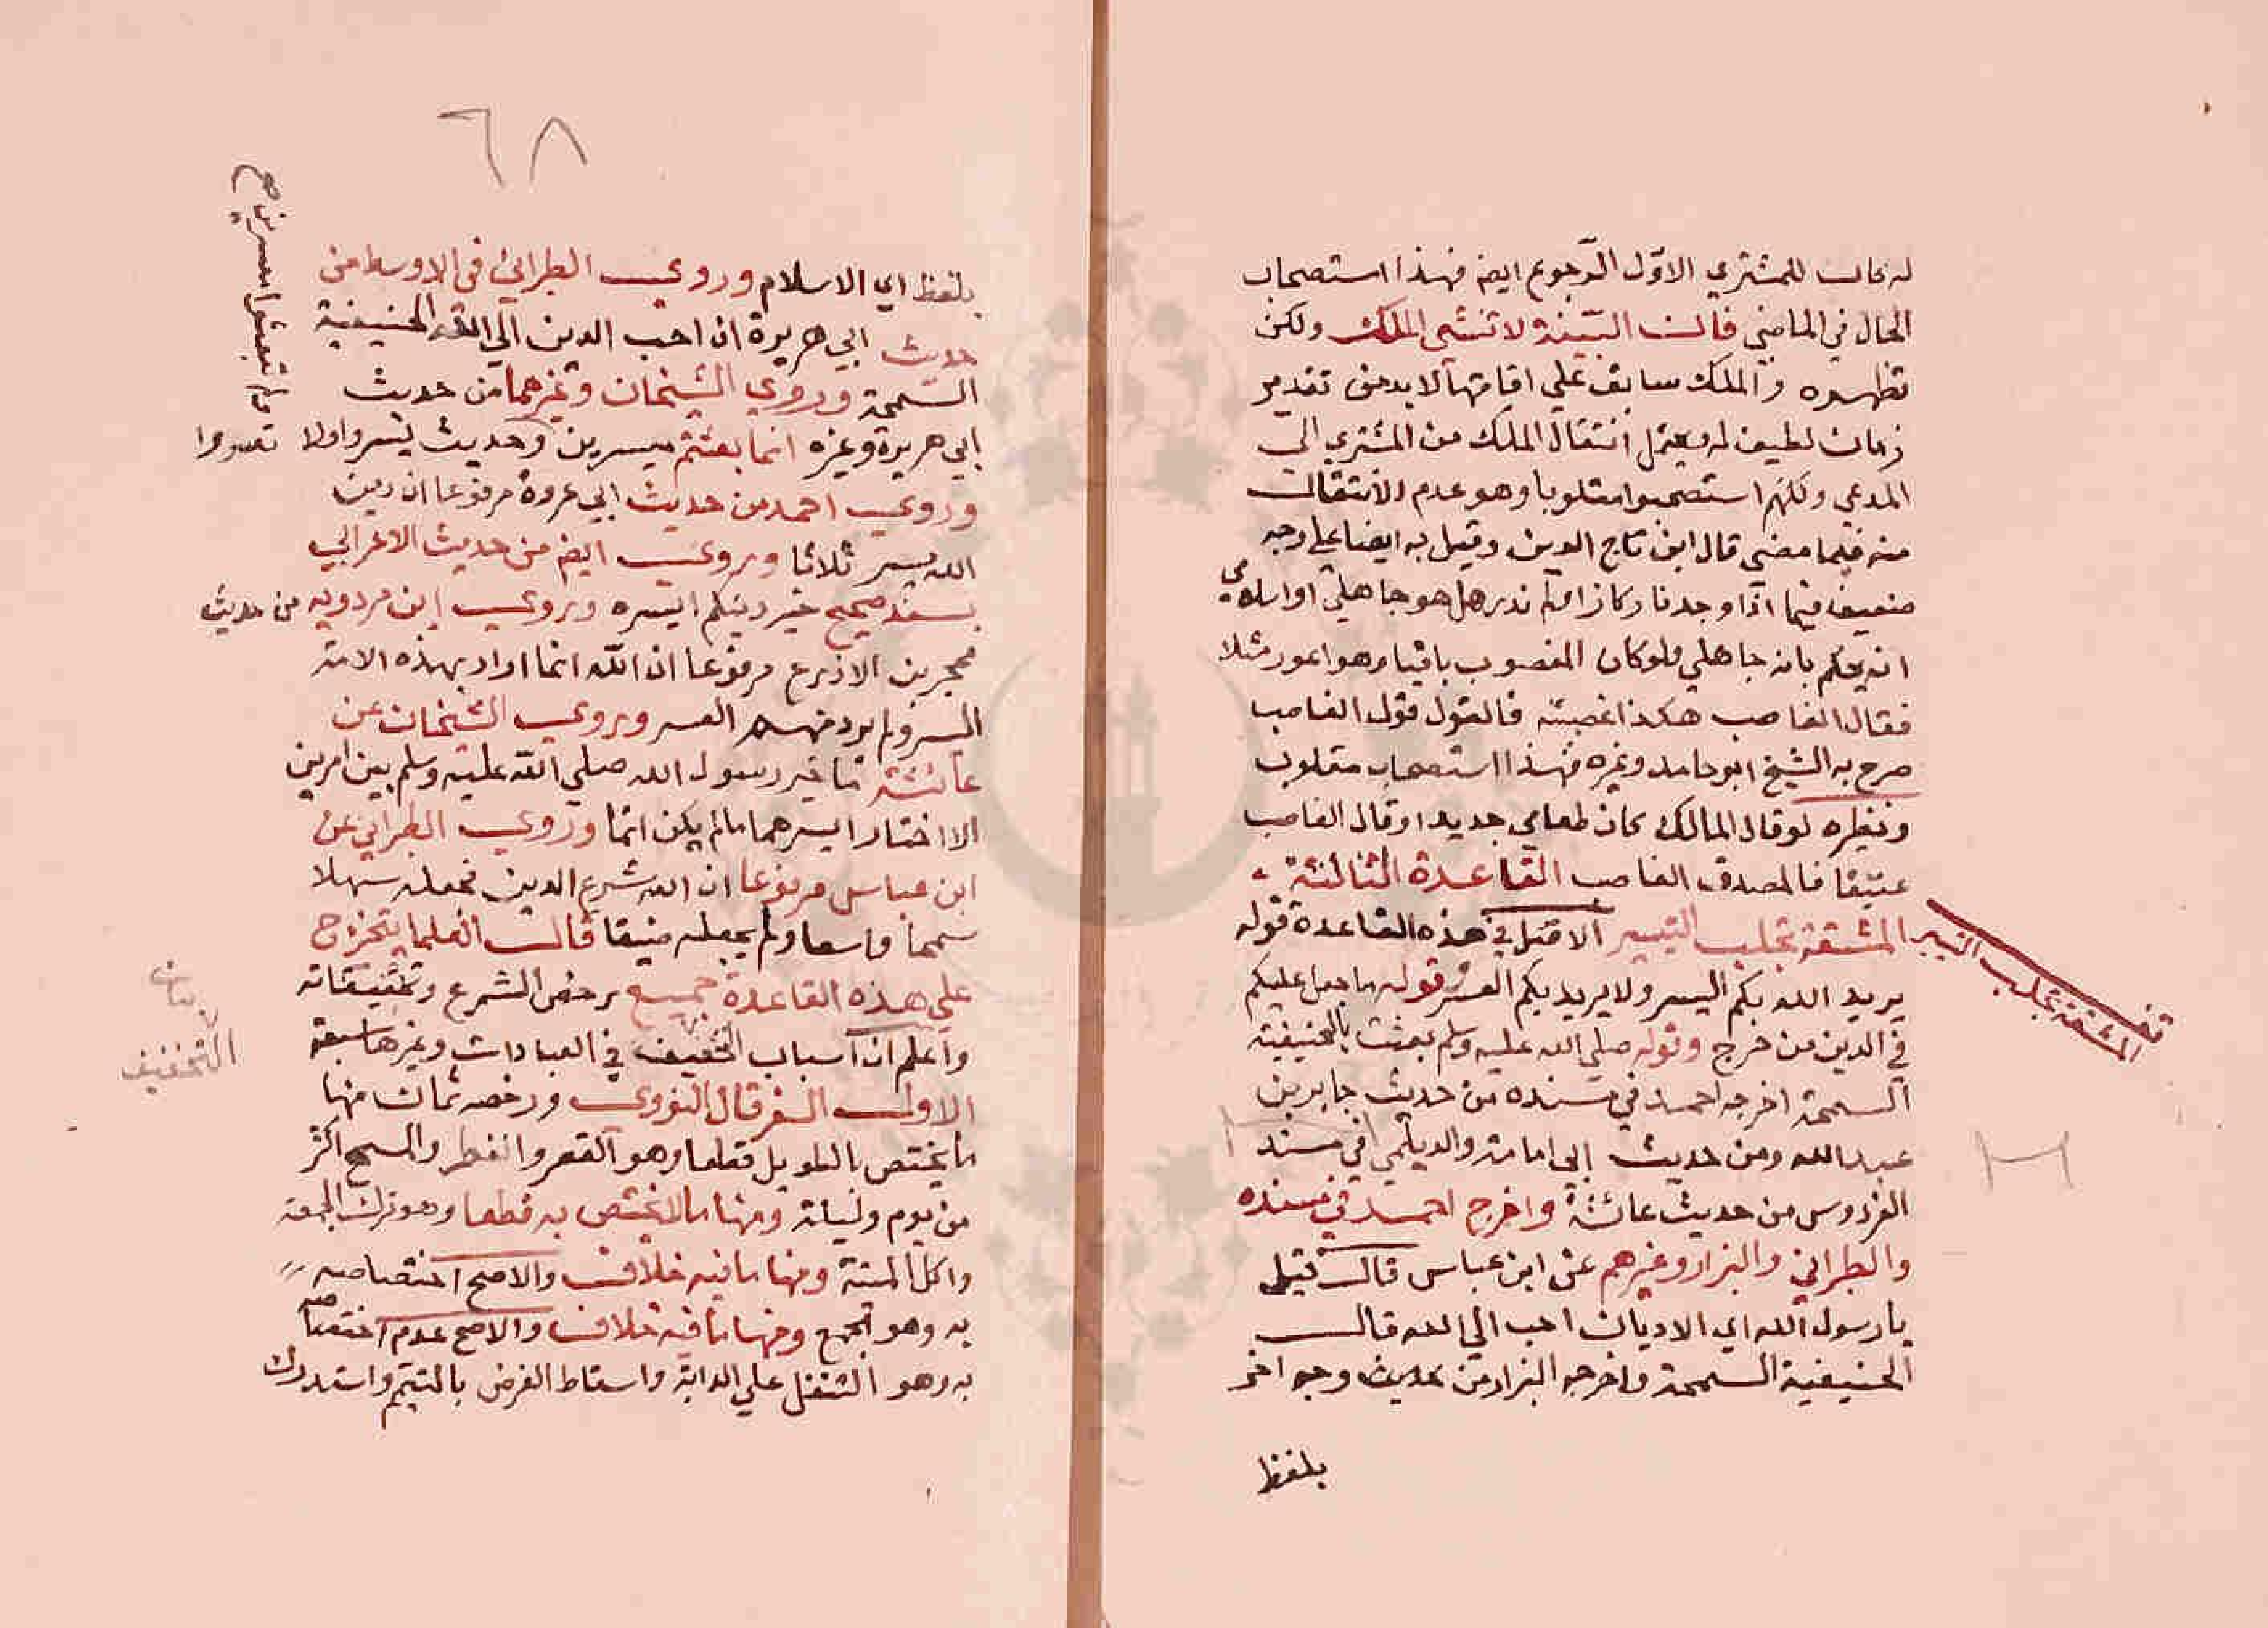 له قالت للمشتري الاول الرجوع ايضا فهذا استصحاب
الحال في الماضي فالت البينة لا تنشي الملك ولكن
تظهره والملك سابق علي اقامتها لا بد من تقدير
زمان لطيف له ويحتمل انتقال الملك من المشتري الي
المدعي ولكنهم استصحبوا مقلوبا وهو عدم الانتقالــ
منه فيما مضي قال ابن تاج الدين وقيل به ايضا علي وجه
ضعيف فيما اذا وجدنا ركازا ولم ندر هل هو جاهلي او اسلامي
انه يحكم بانه جاهلي ولو كان المغصوب باقيا وهو اعور مثلا
فقال الغاصب هكذا غصبته فالقول قول الغاصب
صرح به الشيخ ابو حامد وغيره فهذا استصحاب مقلوب
ونظيره لو قال المالك كان طعامي جديدا وقال الغاصب
عتيقا فالمصدق الغاصب القاعدة الثالثة
المشقة تجلب التيسير الاصل في هذه القاعدة قوله
يريد الله بكم اليسر ولا يريد بكم العسر قوله ما جعل عليكم
في الدين من حرج وقوله صلي الله عليه وسلم بعثت بالحنيفية
السمحة اخرجه احمد في مسنده من حديث جابر بن
عبد الله ومن حديث ابي امامة والديلمي في مسند
الفردوس من حديث عائشة واخرج احمد في مسنده
والطبراني والبزار وغيرهم عن ابن عباس قال قيل
يا رسول الله اي الاديان احب الي الله قالــ
الحنيفية السمحة واخرجه البزار من وجه اخر
بلفظ
المشقة تجلب التيسير
٦٨
بلفظ اي الاسلام وروي الطبراني في الاوسط من
حديث ابي هريرة ان احب الدين الي الله الحنيفية
السمحة وروي الشيخان وغيرهما من حديث
ابي هريرة وغيره انما بعثتم ميسرين وحديث يسروا ولا تعسروا
وروي احمد من حديث ابي عروة مرفوعا ان دين
الله يسر ثلاثا وروي ايضا من حديث الاعرابي
بسند صحيح خير دينكم ايسره وروي ابن مردويه من حديث
محجر بن الادرع مرفوعا ان الله انما اراد بهذه الامة
اليسر ولم يرد بهم العسر وروي الشيخان عن
عائشة ما خير رسول الله صلي الله عليه وسلم بين امرين
الا اختار ايسرهما ما لم يكن اثما وروي الطبراني عن
ابن عباس مرفوعا ان الله شرع الدين فجعله سهلا
سمحا واسعا ولم يجعله ضيقا قالت العلما يتخرج
علي هذه القاعدة جميع رخص الشرع وتخفيفاته
واعلم ان اسباب التخفيف في العبادات وغيرها سبعة
الاول السفر قال النووي ورخصه ثمان منها
ما يختص بالطويل قطعا وهو القصر والفطر والمسح اكثر
من يوم وليلة ومنها ما لا يختص به قطعا وهو ترك الجمعة
واكل الميتة ومنها ما فيه خلاف والاصح اختصاصه
به وهو الجمع ومنها ما فيه خلاف والاصح عدم اختصاصه
به وهو التنفل علي الدابة واسقاط الفرض بالتيمم واستدرك
بيان
التخفيف